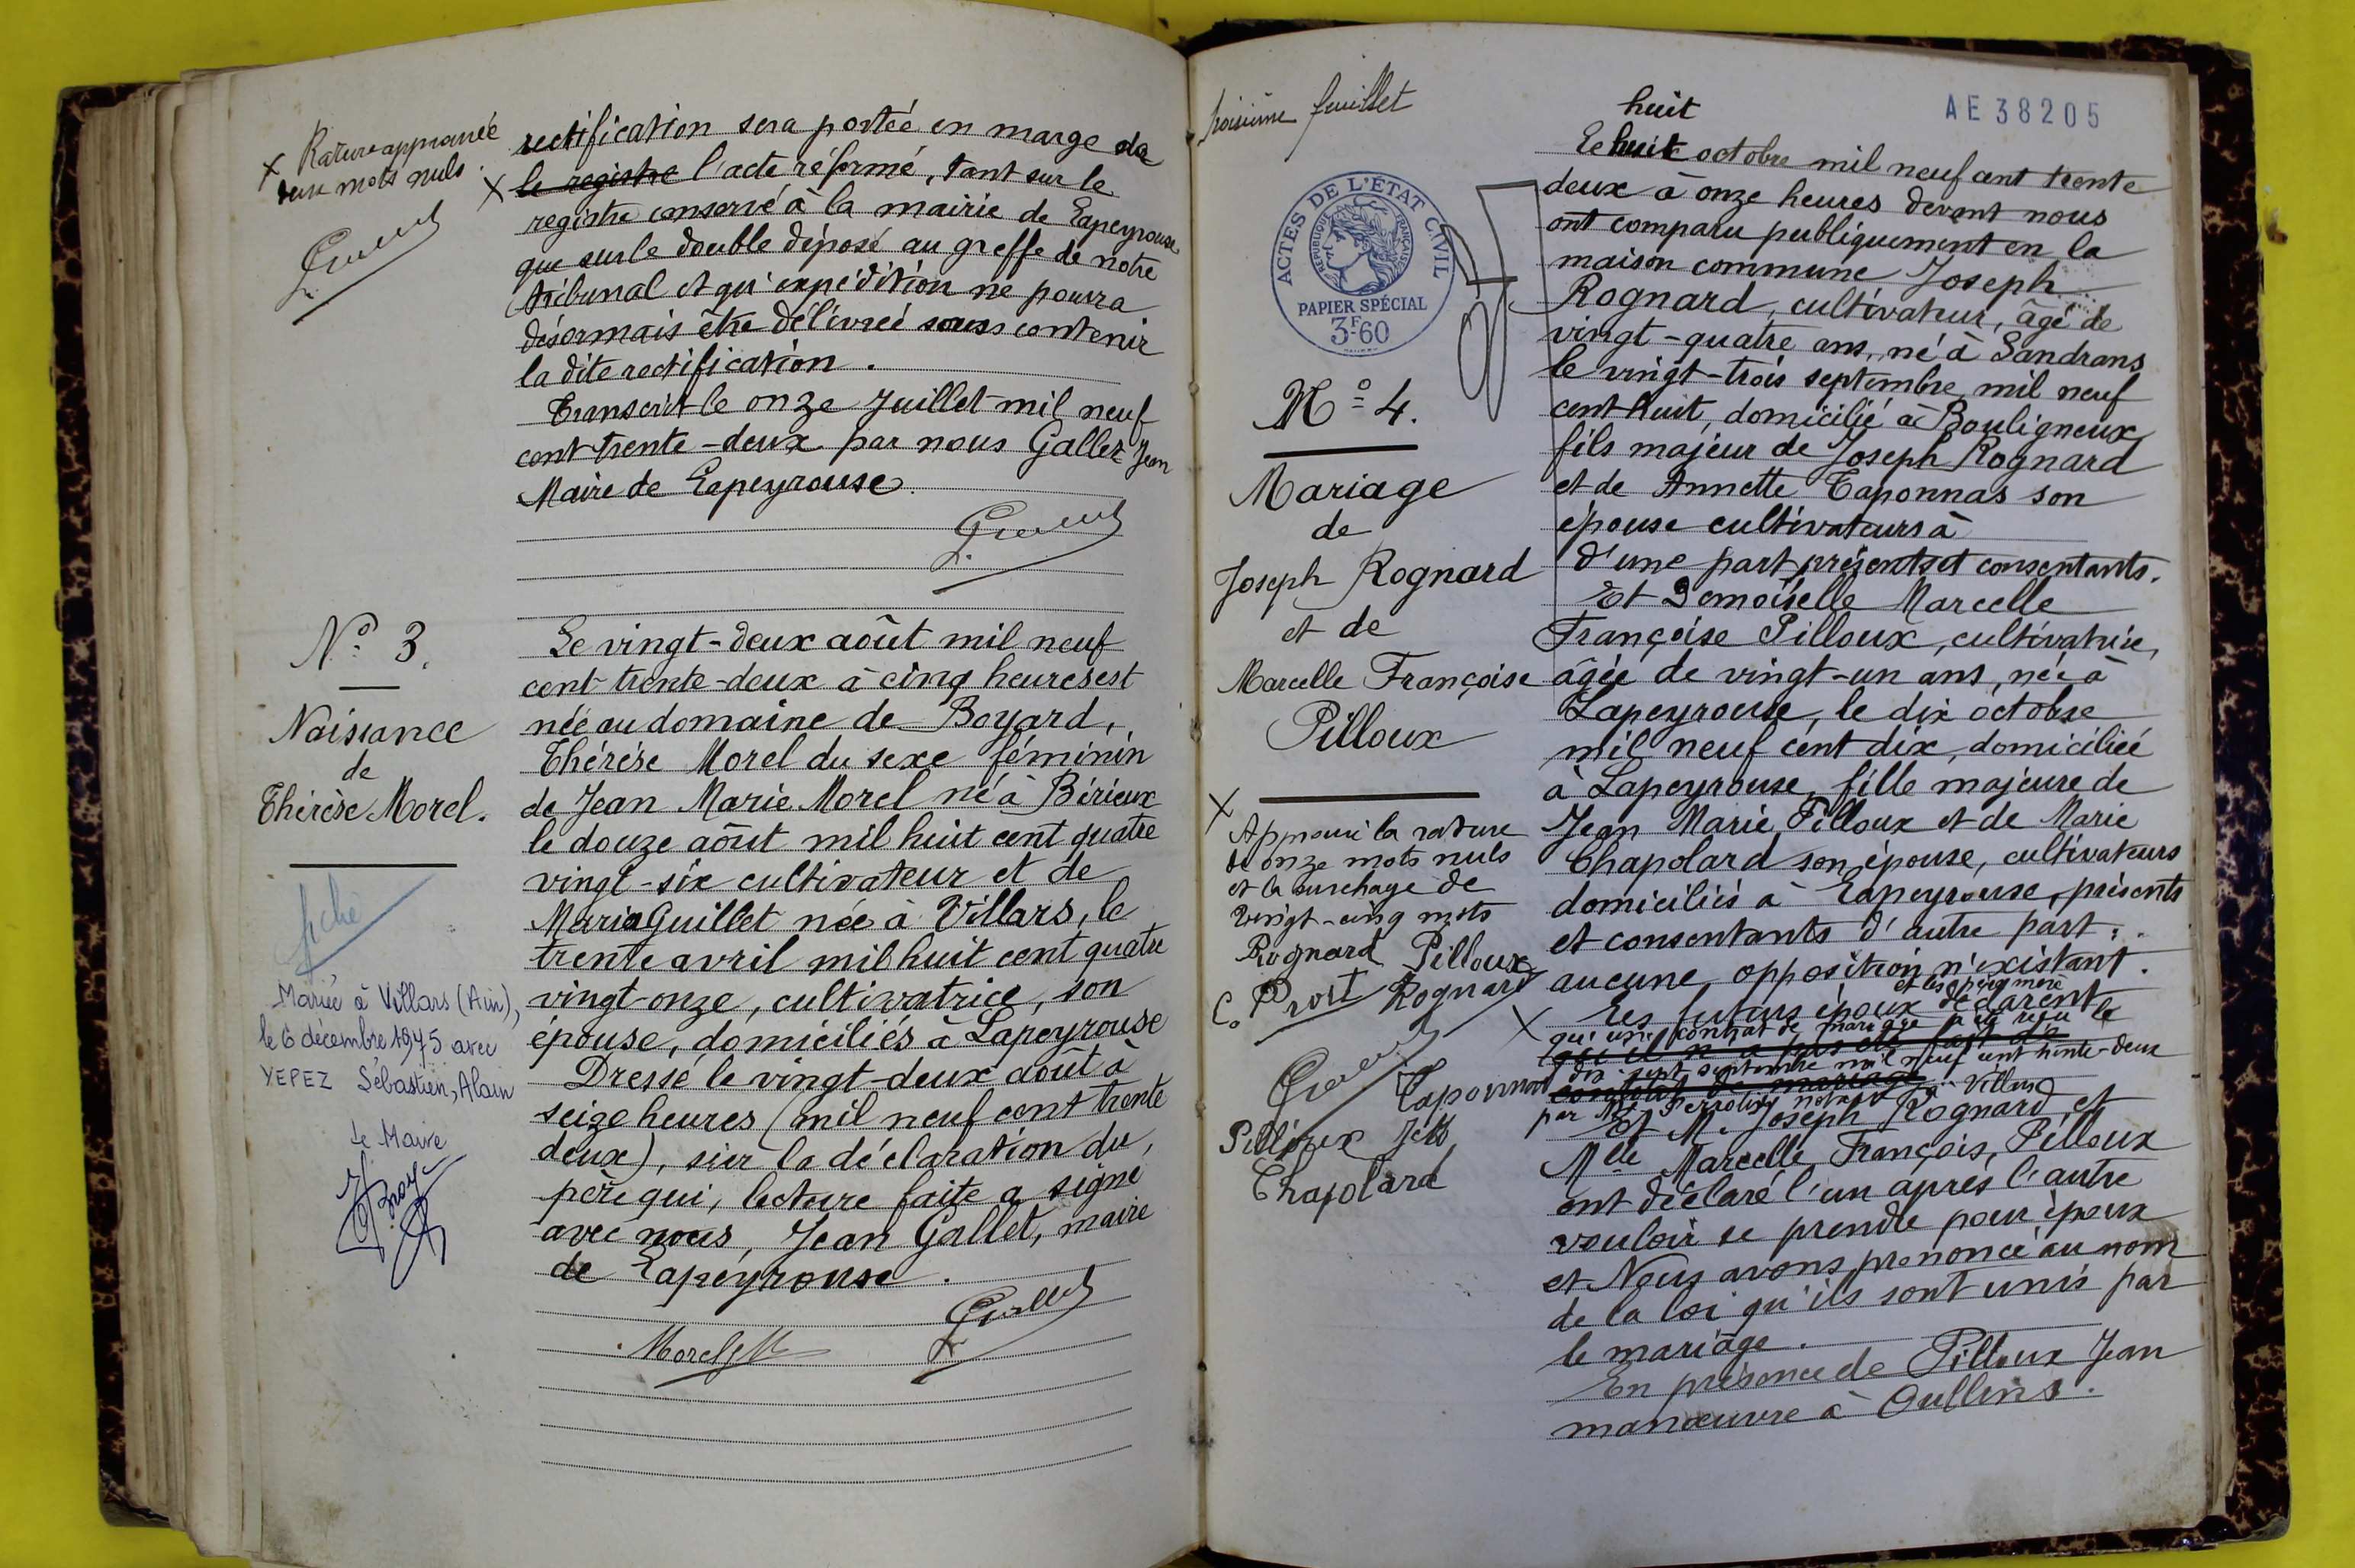 x Rature approuvée
deux mots nuls.
rectification sera portée en marge de
x le registre l'acte réformé, tant sur le
registre conservé à la mairie de Lapeyrouse
que sur le double déposé au greffe de notre
tribunal et qu'expédition ne pourra
désormais être délivrée sans contenir
la dite rectification.
Transcrit le onze Juillet mil neuf
cent trente-deux par nous Gallet Jean
Maire de Lapeyrouse.
N° 3.
Naissance
de
Thérèse Morel.
fiché
Mariée à Villars (Ain),
le 6 décembre 1975 avec
YEPEZ Sébastien, Alain
Le Maire
Le vingt-deux août mil neuf
cent trente-deux à cinq heures est
née au domaine de Boyard,
Thérèse Morel du sexe féminin
de Jean Marie Morel né à Birieux
le douze août mil huit cent quatre
vingt-six cultivateur et de
Maria Guillet née à Villars, le
trente avril mil huit cent quatre
vingt-onze, cultivatrice, son
épouse, domiciliés à Lapeyrouse
Dressé le vingt-deux août à
seize heures (mil neuf cent trente
deux), sur la déclaration du
père qui, lecture faite a signé
avec nous, Jean Gallet, maire
de Lapeyrouse.
Morel JM
Gallet
troisième feuillet
AE 38205
ACTES DE L'ÉTAT CIVIL
RÉPUBLIQUE FRANÇAISE
PAPIER SPÉCIAL
3F-60
N° 4.
Mariage
de
Joseph Rognard
et de
Marcelle Françoise
Pilloux
x
Approuvé la rature
de onze mots nuls
et la surchage de
vingt-cinq mots
Rognard Pilloux
C. Prost Rognard
Taponnat
Pilloux JM
Chapolard
huit
Le huit octobre mil neuf cent trente
deux à onze heures devant nous
ont comparu publiquement en la
maison commune Joseph
Rognard, cultivateur, âgé de
vingt-quatre ans, né à Sandrans
le vingt-trois septembre mil neuf
cent huit, domicilié à Bouligneux
fils majeur de Joseph Rognard
et de Annette Taponnas son
épouse cultivateurs à
d'une part présents et consentants.
Et Demoiselle Marcelle
Françoise Pilloux, cultivatrice,
âgée de vingt-un ans, née à
Lapeyrouse, le dix octobre
mil neuf cent dix, domiciliée
à Lapeyrouse, fille majeure de
Jean Marie Pilloux et de Marie
Chapolard son épouse, cultivateurs
domiciliés à Lapeyrouse, présents
et consentants d'autre part:
aucune opposition n'existant.
et les père mère
x Les futurs époux déclarent
qu'un contrat de mariage a été reçu le
qu'il n'a pas été fait de
dix-sept septembre mil neuf cent trente-deux
contrat de mariage
par Me notaire à Villars
Et M. Joseph Rognard et
Mlle Marcelle François, Pilloux
ont déclaré l'un après l'autre
vouloir se prendre pour époux
et Nous avons prononcé au nom
de la loi qu'ils sont unis par
le mariage.
En présence de Pilloux Jean
manœuvre à Oullins.